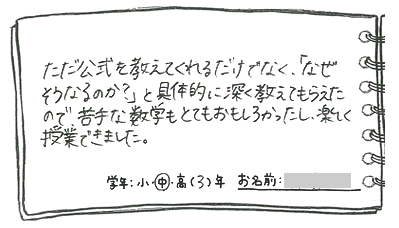 ただ公式を教えてくれるだけでなく、「なぜ
そうなるのか?」と具体的に深く教えてもらえた
ので、苦手な数学もとてもおもしろかったし、楽しく
授業できました。
学年:小・中・高(3)年 お名前: